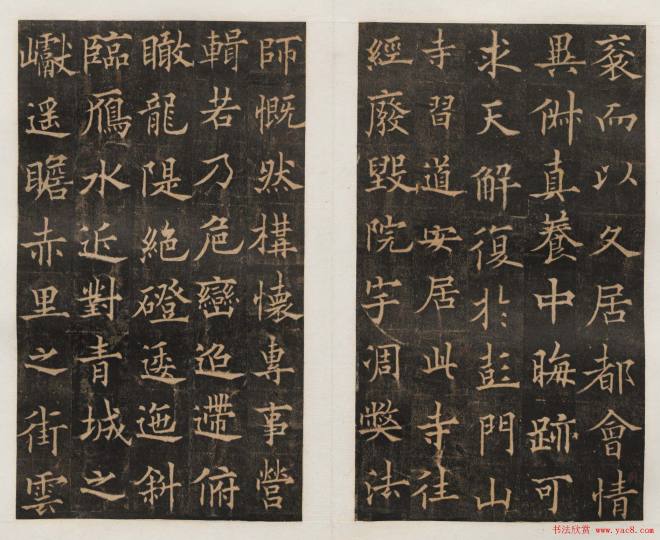 褒而以久居都會情
異俗真養中晦跡可
求天解復於彭門山
寺習道安居此寺往
經廢毀院宇凋弊法
師慨然構懷專事營
輯若乃危巒迢遰俯
瞰龍隄絕磴逶迤斜
臨鴈水近對青城之
巘遥瞻赤里之街雲
书法欣赏 www.yac8.com